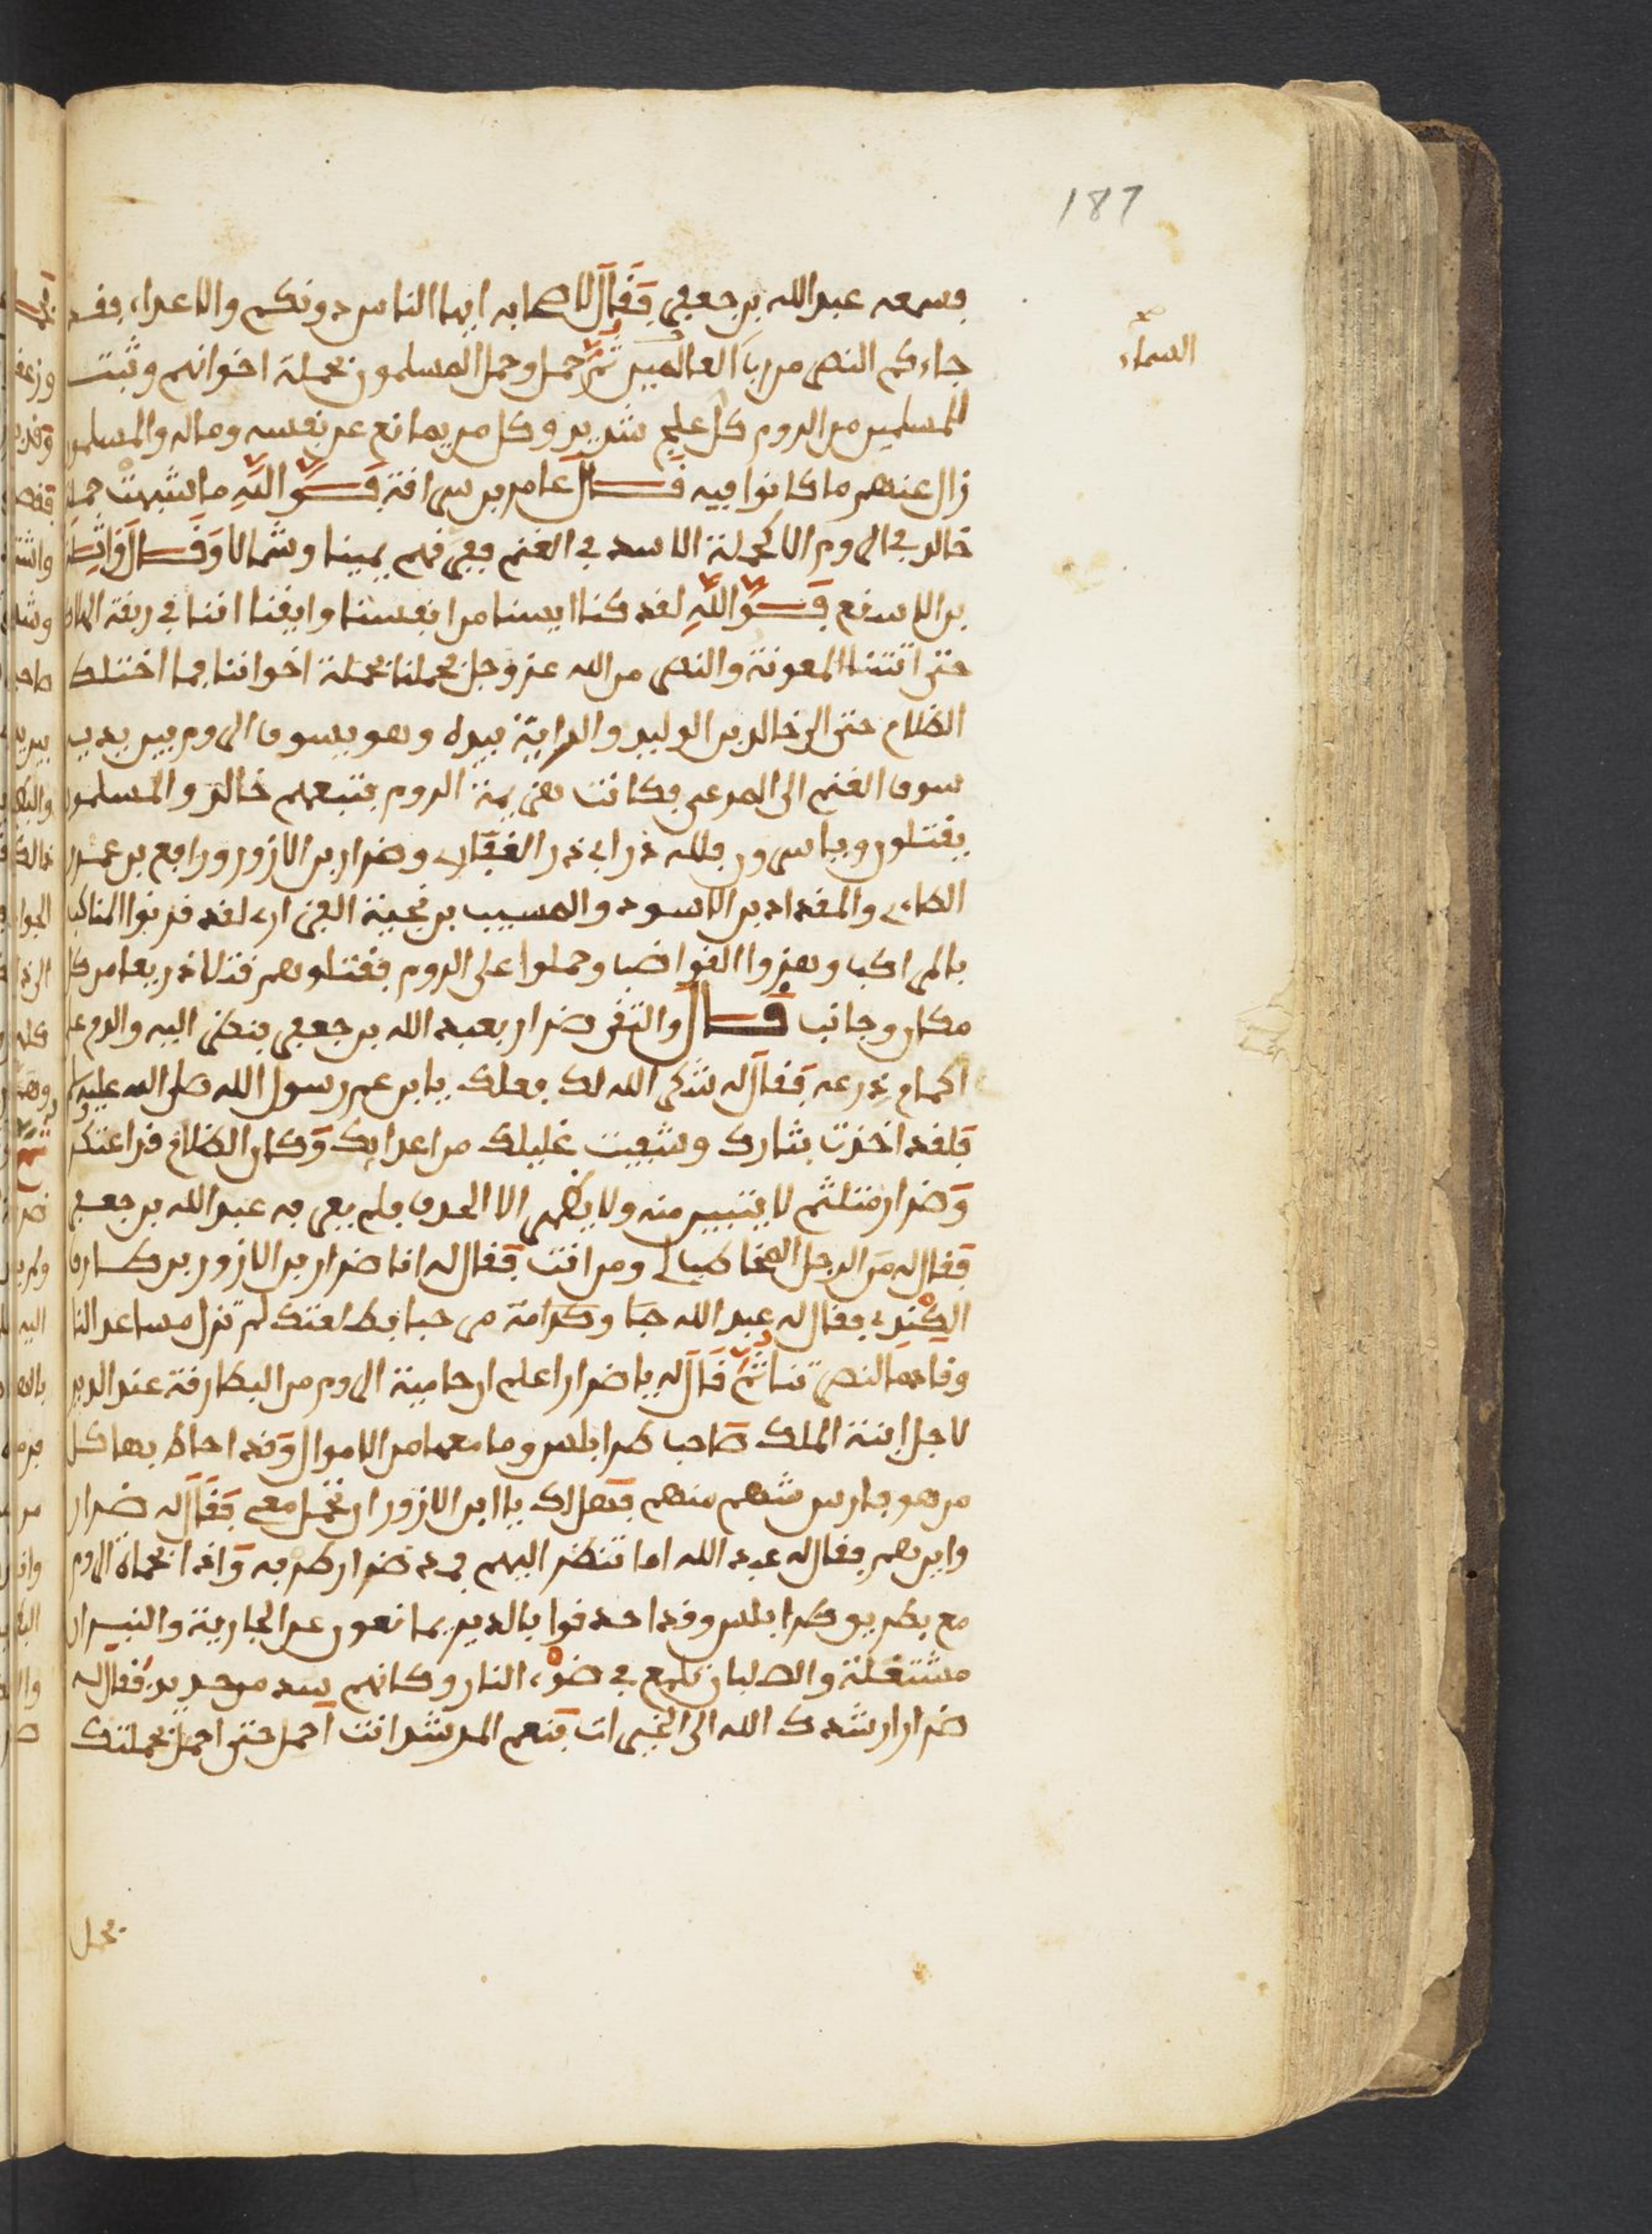 187
فسمعه عبد الله بن جعفر فقال لاصحابه ايها الناس دونكم والاعداء فقد
السماء
جاءكم النصر من رب العالمين ثم حمل وحمل المسلمون بحملة اخوانهم وثبت
للمسلمين من الروم كل علج شديد وكل من يمانع عن نفسه وماله والمسلمون
زال عنهم ما كانوا فيه قال عامر بن سراقة فوالله ما شبهت حملة
خالد في الروم الا كحملة الاسد في الغنم ففرقهم يمينا وشمالا وقال واثلة
بن الاسقع فوالله لقد كنا ايسنا من انفسنا وايقنا اننا في ربقة الهلاك
حتى اتتنا المعونة والنصر من الله عز وجل فحملنا بحملة اخواننا فما اختلك
الظلام حتى الى خالد بن الوليد والراية بيده وهو يسوق الروم بين يديه
سوق الغنم الى المرعى فكانت هزيمة الروم يتبعهم خالد والمسلمون
يقتلون وياسرون فلله در ابي ذر الغفاري وضرار بن الازور ورافع بن عميرة
الطاءي والمقداد بن الاسود والمسيب بن نجيبة الفزاري لقد قرنوا المناكب
بالمراكب وهزوا القواضب وحملوا على الروم فقتلوهم قتلا ذريعا من كل
مكان وجانب قال والتقى ضرار بعبد الله بن جعفر ينظر اليه والدم على
اكمام درعه فقال له شكر الله لك فعلك يا بن عم رسول الله صلى الله عليه
فلقد اخذت بثارك وشفيت غليلك من اعدايك وكان الظلام قد اعتكر
وضرار متلثم لا يتبين منه ولا يظهر الا الحدق فلم يعرفه عبد الله بن جعفر
فقال له من الرجل المخاطب لي ومن انت فقال له انا ضرار بن الازور بن طارق
الكندي فقال له عبد الله حبا وكرامة مرحبا بطلعتك لم تزل مساعد النا
وقاصدا لنصرتنا ثم قال له يا ضرار اعلم ان حامية الروم من البطارقة عند الدير
لاجل ابنة الملك صاحب طرابلس وما معها من الاموال وقد احاط بها كل
من هو فارس شهم منهم فهل لك يا ابن الازور ان تحمل معي فقال له ضرار
واين هم فقال له عبد الله اما تنظر اليهم فمد ضرار طرفه واذا بحماة الروم
مع بطريق طرابلس وقد احدقوا بالدير يمانعون عن الجارية والنيران
مشتعلة والصلبان تلمع في ضوء النار وكانهم سد من حديد فقال له
ضرار ارشدك الله الى الخيرات فنعم المرشد انت احمل حتى احمل بحملتك
فحمل